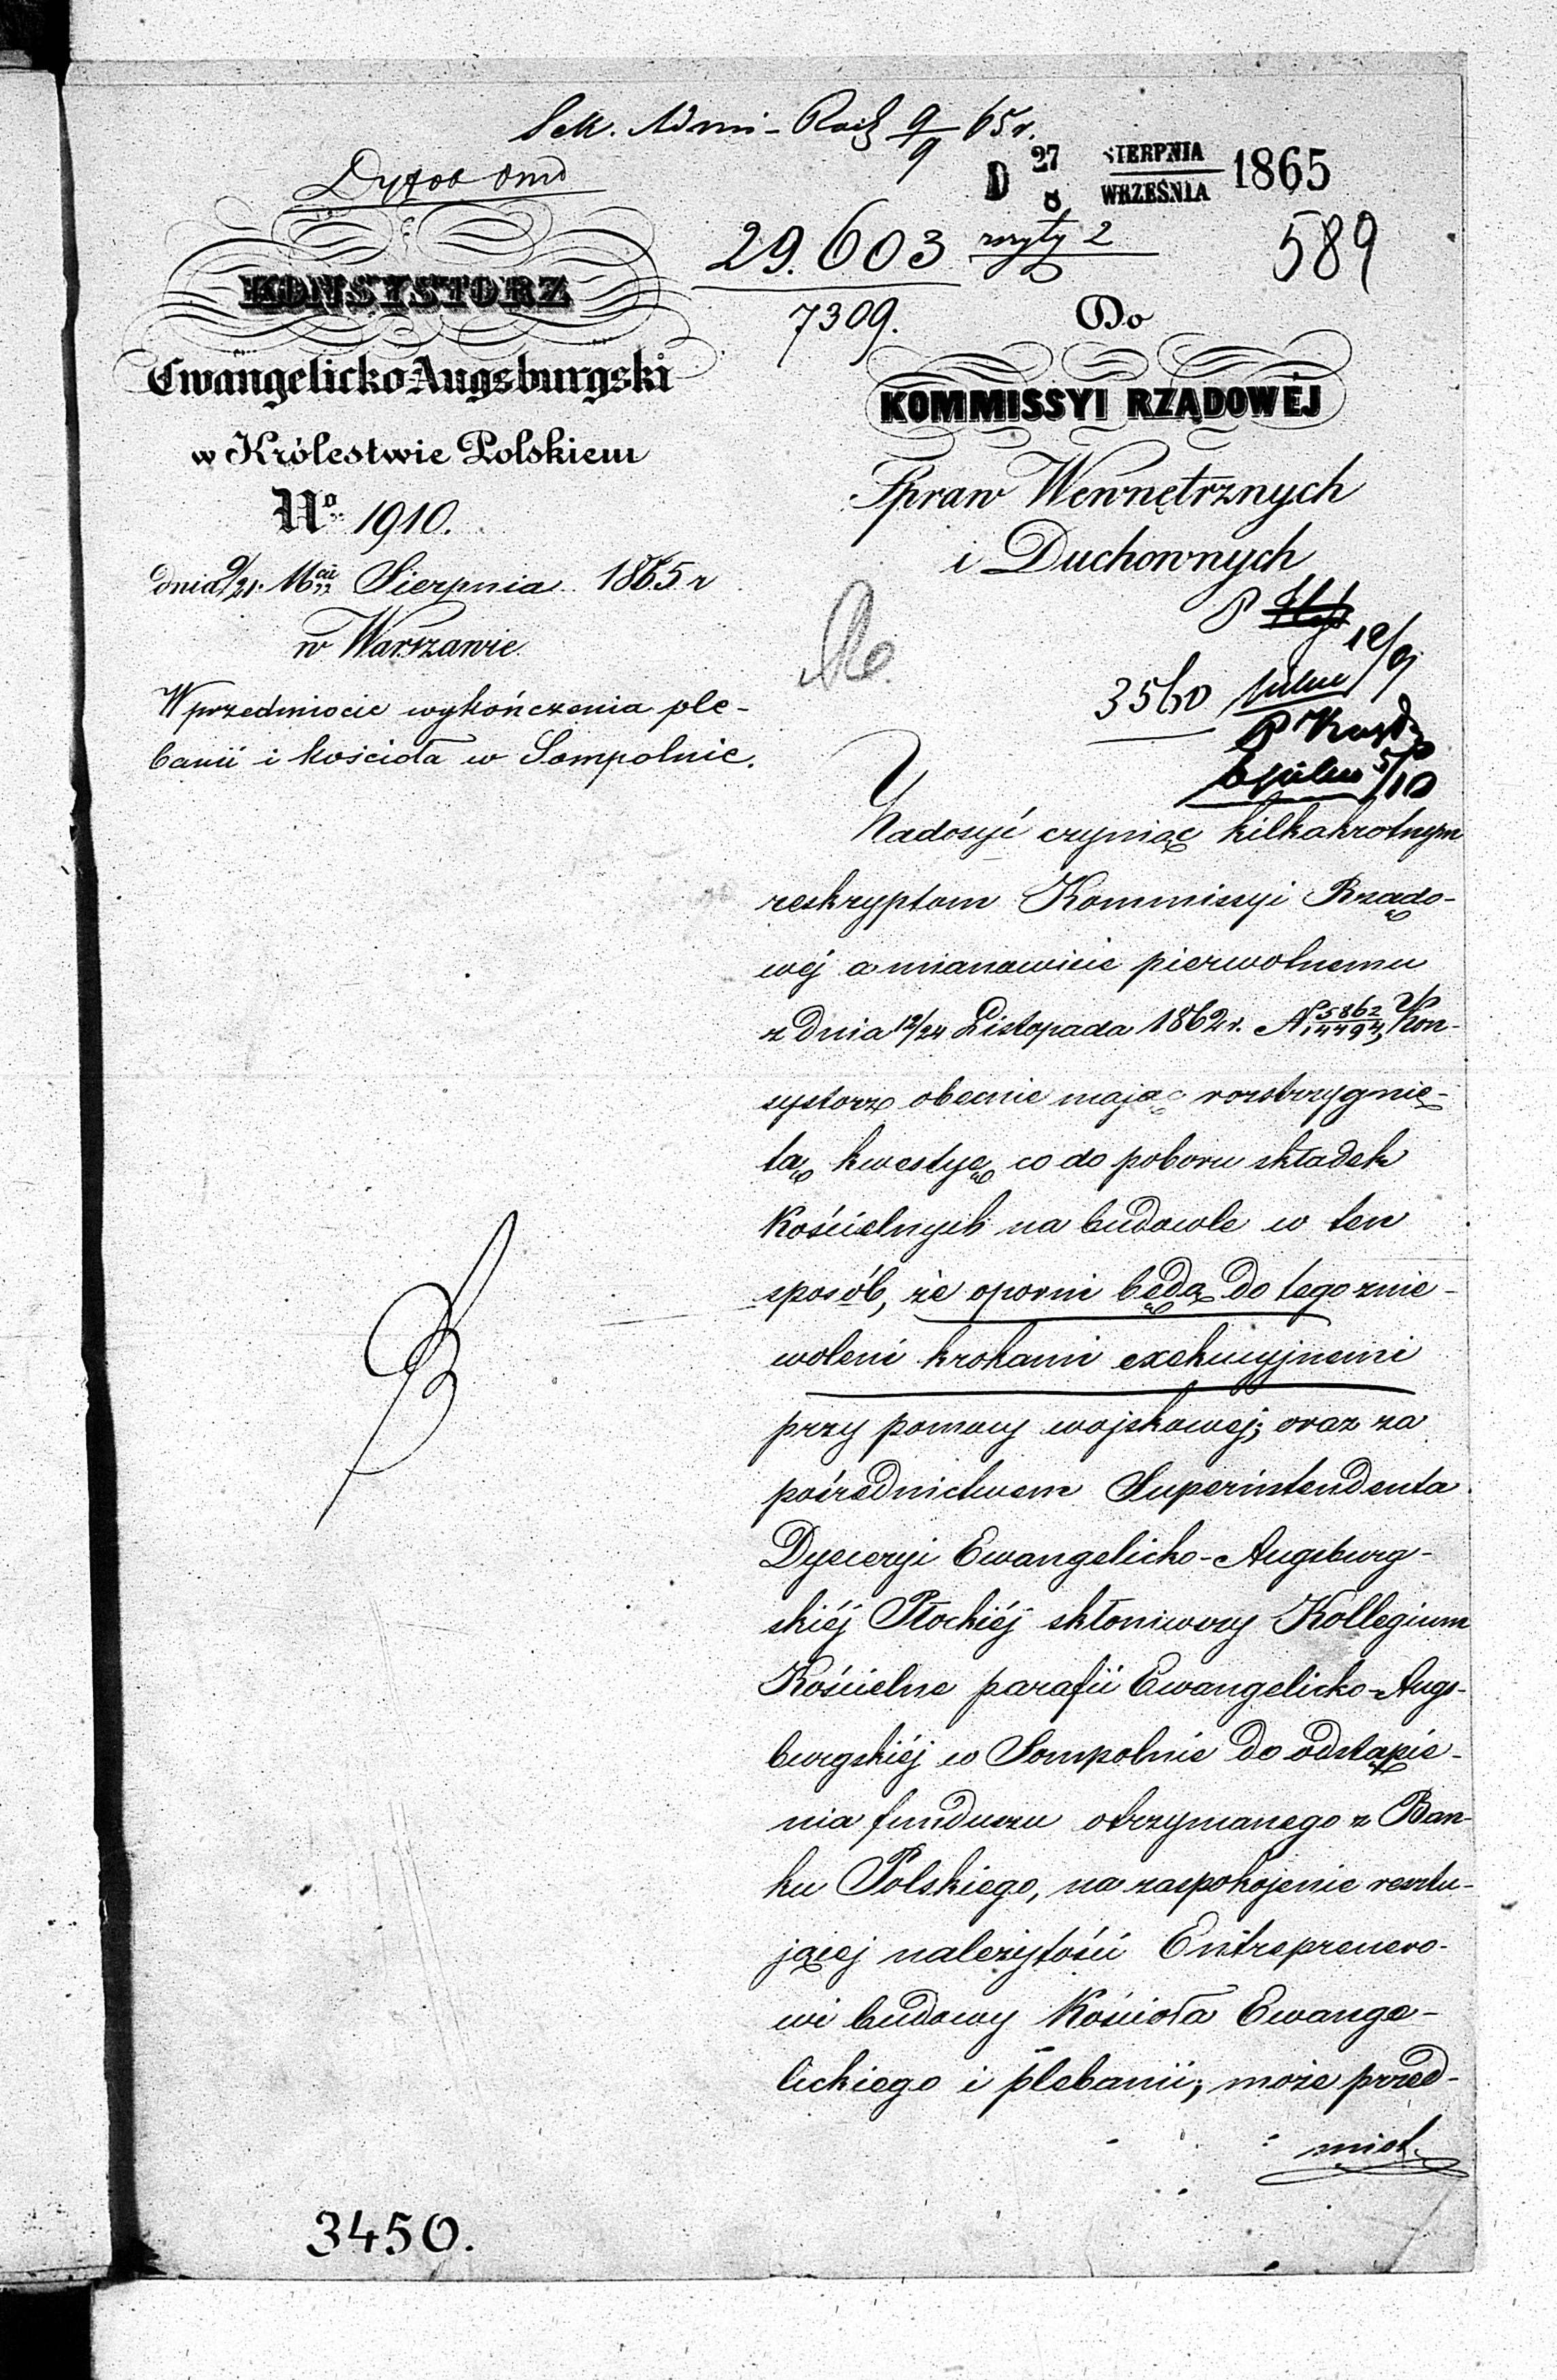 Sek. Admi- Rach 9/9 65 r.
D 27/8 SIERPNIA/WRZEŚNIA 1865
29.603 zszyty 2
7309.
589
KONSYSTORZ
Ewangelicko Augsburgski
w Królestwie Polskiem
No 1910.
dnia 9/21. Mca Sierpnia 1865 r
w Warszawie.
W przedmiocie wykończenia ple-
banii i kościoła w Sompolnie.
Do
KOMMISSYI RZĄDOWÉJ
Spraw Wewnętrznych
i Duchownych
P
12/9
3560
5/10
Zadosyć czyniąc kilkakrotnym
reskryptom Kommissyi Rządo-
wéj a mianowicie pierwotnemu
z dnia 12/24 Listopada 1862 r. N 5862/14494, Kon-
systorz obecnie mając rozstrzygnię-
tą kwestyę co do poboru składek
Kościelnych na budowle w ten
sposób, że oporni będą do tego znie-
woleni krokami exekucyjnemi
przy pomocy wojskowej; oraz za
pośrednictwem Superintendenta
Dyecezyi Ewangelicko-Augsburg-
skiéj Płockiéj skłoniwszy Kollegium
Kościelne parafii Ewangelicko-Augs-
burgskiéj w Sompolnie do odstąpie-
nia funduszu otrzymanego z Ban-
ku Polskiego, na zaspokojenie resztu-
jącej należytości Entreprenero-
wi budowy Kościoła Ewange-
lickiego i plebanii; może przed-
miot.
3450.